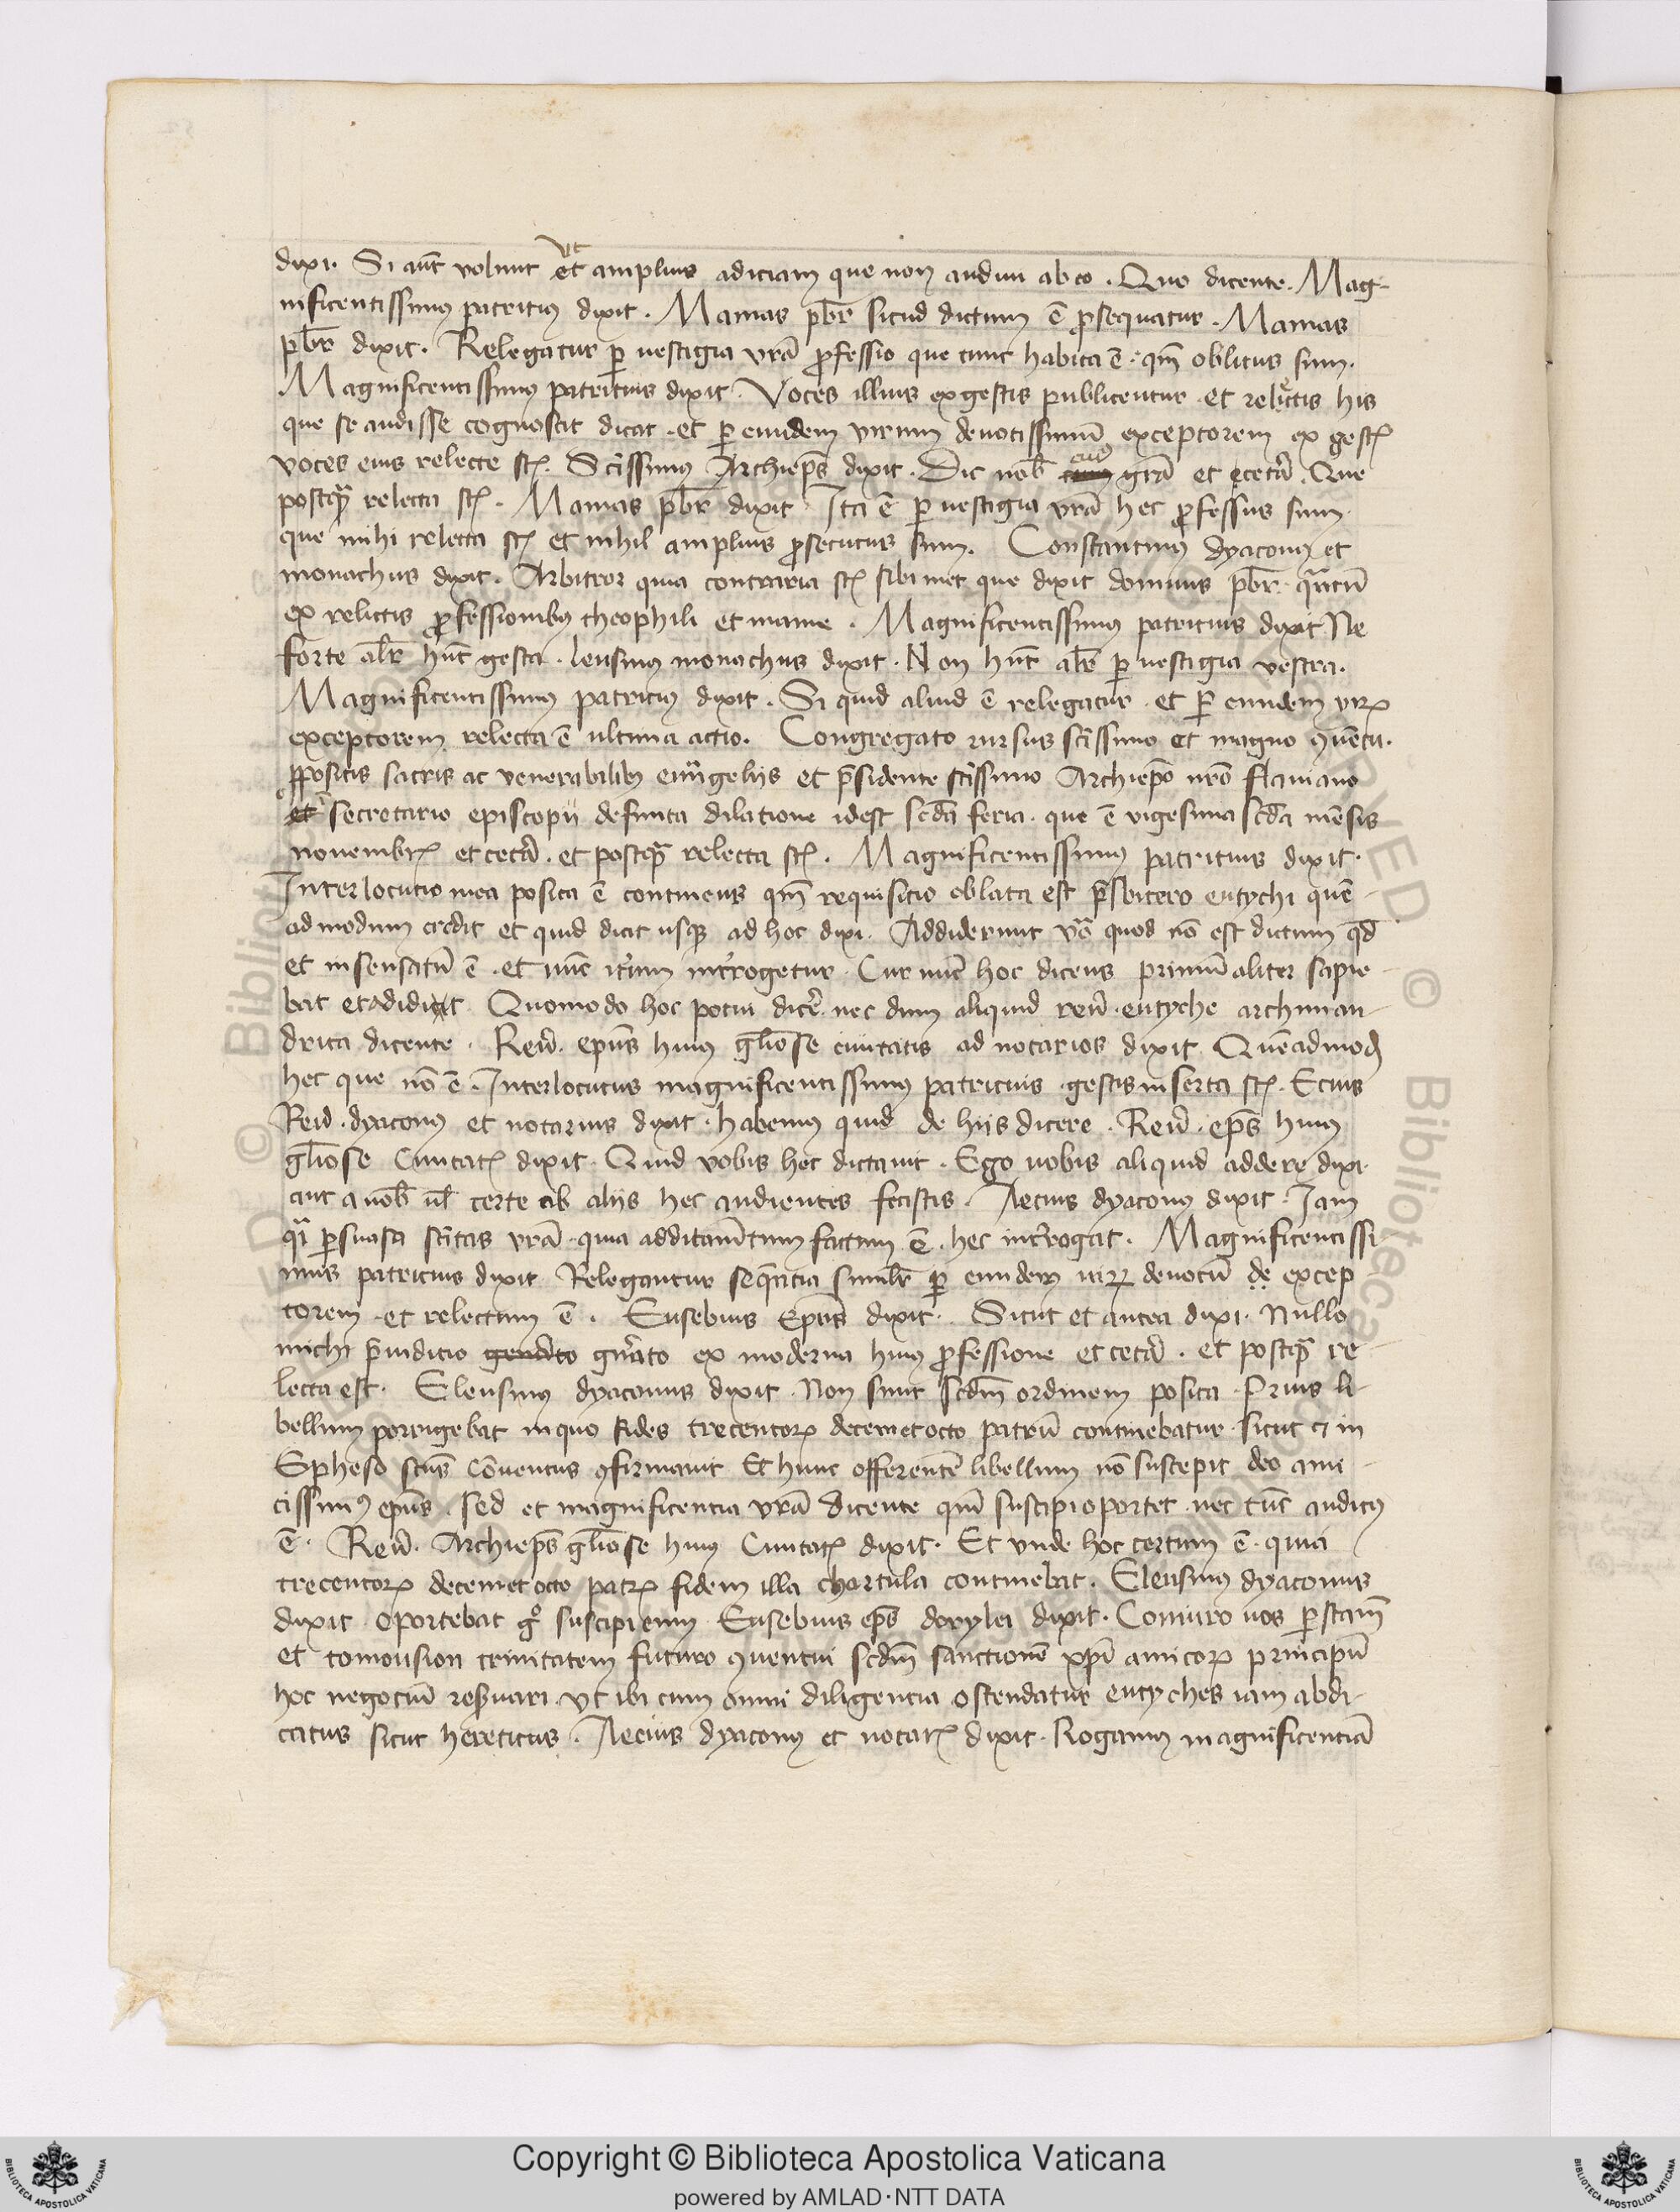 dixi. Si aūt volunt et ut amplius adiciam que non audiui ab eo. Quo dicente. Mag-
nificentissimꝰ patritiꝰ dixit. Mamas pbr̄ sicud dictum ē ꝓsequatur. Mamas
pbr̄ dixit. Relegatur ꝑ uestigia vrā ꝓfessio que tunc habita ē. qm̄ oblitus sum.
Magnificentissimꝰ patritius dixit. Voces illius ex gestis publicentur et relictis his
que se audisse cognoscit dicat. et ꝑ eundem virum deuotissimū exceptorem ex gestꝭ
voces eius relecte st̄. Sc̄issimus Archiep̄s dixit. Dic nob̄ cuiꝰ grā et ceterā. Que
postqꝫ relecta st̄. Mamas pbr̄ dixit Ita ē ꝑ uestigia vrā hec ꝓfessus sum.
que mihi relecta st̄ et nihil amplius ꝓsecutus sum. Constantinꝰ dyaconꝰ et
monachus dixit. Arbitror quia contraria st̄ sibimet que dixit dominus pbr̄. qꝫtū
ex relictis ꝓfessionibꝰ theophili et mame. Magnificentissimus patritius dixit Ne
forte alr̄ hn̄t gesta. leusinꝰ monachus dixit. Non hn̄t alr̄ ꝑ uestigia vestra.
Magnificentissimꝰ patriciꝰ dixit. Si quid aliud ē relegatur et ꝑ eundem virꝫ
exceptorem relecta ē ultima actio. Congregato rursus sc̄issimo et magno ꝯuētu.
ꝓpositis sacris ac venerabilibꝰ euāgeliis et p̄sidente sc̄issimo Archiep̄o nr̄o flauiano
et secretario episcopij defuncta dilatione idest scd̄a feria. que ē vigesima scd̄a mēsis
nouembrꝭ et ceterā. et postqꝫ relecta st̄. Magnificentissimus patritius dixit.
Interlocutio mea posita ē continens qm̄ requisitio oblata est p̄sbitero eutychi quē-
admodum credit et quid dicit usqꝫ ad hoc dixi. Addiderunt v̄o quod nō est dictum qd̄
et insensatū ē. et nūc it̄um int̄rogetur. Cur nūc hoc dicens primū aliter sapie-
bat et addidit Quomodo hoc potui dicē nec dum aliquid reuē. eutyche archiman-
drita dicente. Reuē. ep̄us huiꝰ glīose ciuitatis ad notarios dixit Quēadmodꝫ
hec que nō ē. Interlocutus magnificentissimus patritius gestis inserta st̄. Ecius
Reuē. dyaconꝰ et notarius dixit. habemus quid de hiis dicere. Reuē. ep̄s huiꝰ
glīose Ciuitatꝭ dixit. Quid vobis hec dictauit. Ego uobis aliquid addere dixi
aut a uob̄ ul̄ certe ab aliis hec audientes fecistis. Aecius dyaconꝰ dixit. Iam
qꝫ ꝑsuasa sc̄itas vrā. quia additamētum factum ē. hec int̄rogat. Magnificentissi
mus patritius dixit Relegantur seqꝫtia simılr̄ ꝑ eundem uirꝫ deuotū de excep-
torem et relectum ē. Eusebius Ep̄us dixit. Sicut et antea dixi. Nullo
michi p̄iudicio gn̄ato ex moderna huiꝰ ꝓfessione et ceterā. et postqꝫ re-
lecta est. Eleusinꝰ dyaconus dixit. Non sunt scd̄m ordinem posita. Prius li-
bellum porrigebat in quo fides trecentoꝝ decemet octo patrū continebatur sicut et in
Epheso sc̄us Cōuentus ꝯfirmauit Et hunc offerentē libellum nō suscepit deo ami-
cissimꝰ ep̄us. sed et magnificencia vrā dicente qm̄ suscipi oportet. nec tūc auditꝰ
ē. Reuē. Archiep̄s glīose huiꝰ Ciuitatꝭ dixit. Et vnde hoc certum ē. quia
trecentoꝝ decemet octo patrꝫ fidem illa chartula continebat. Eleusinꝰ dyaconus
dixit oportebat g͛ suscipi enim Eusebius ep̄s dorylei dixit. Coniuro uos ꝑ sc̄am
et tomousion trinitatem futuro ꝯuentui scd̄m sanctionē xp̄i amicoꝝ principū
hoc negociū res̄uari vt ibi cum omni diligencia ostendatur eutyches iam abdi-
catus sicut hereticus. Aecius dyaconꝰ et notarꝭ dixit. Rogamꝰ magnificentiā
Copyright © Biblioteca Apostolica Vaticana
powered by AMLAD·NTT DATA